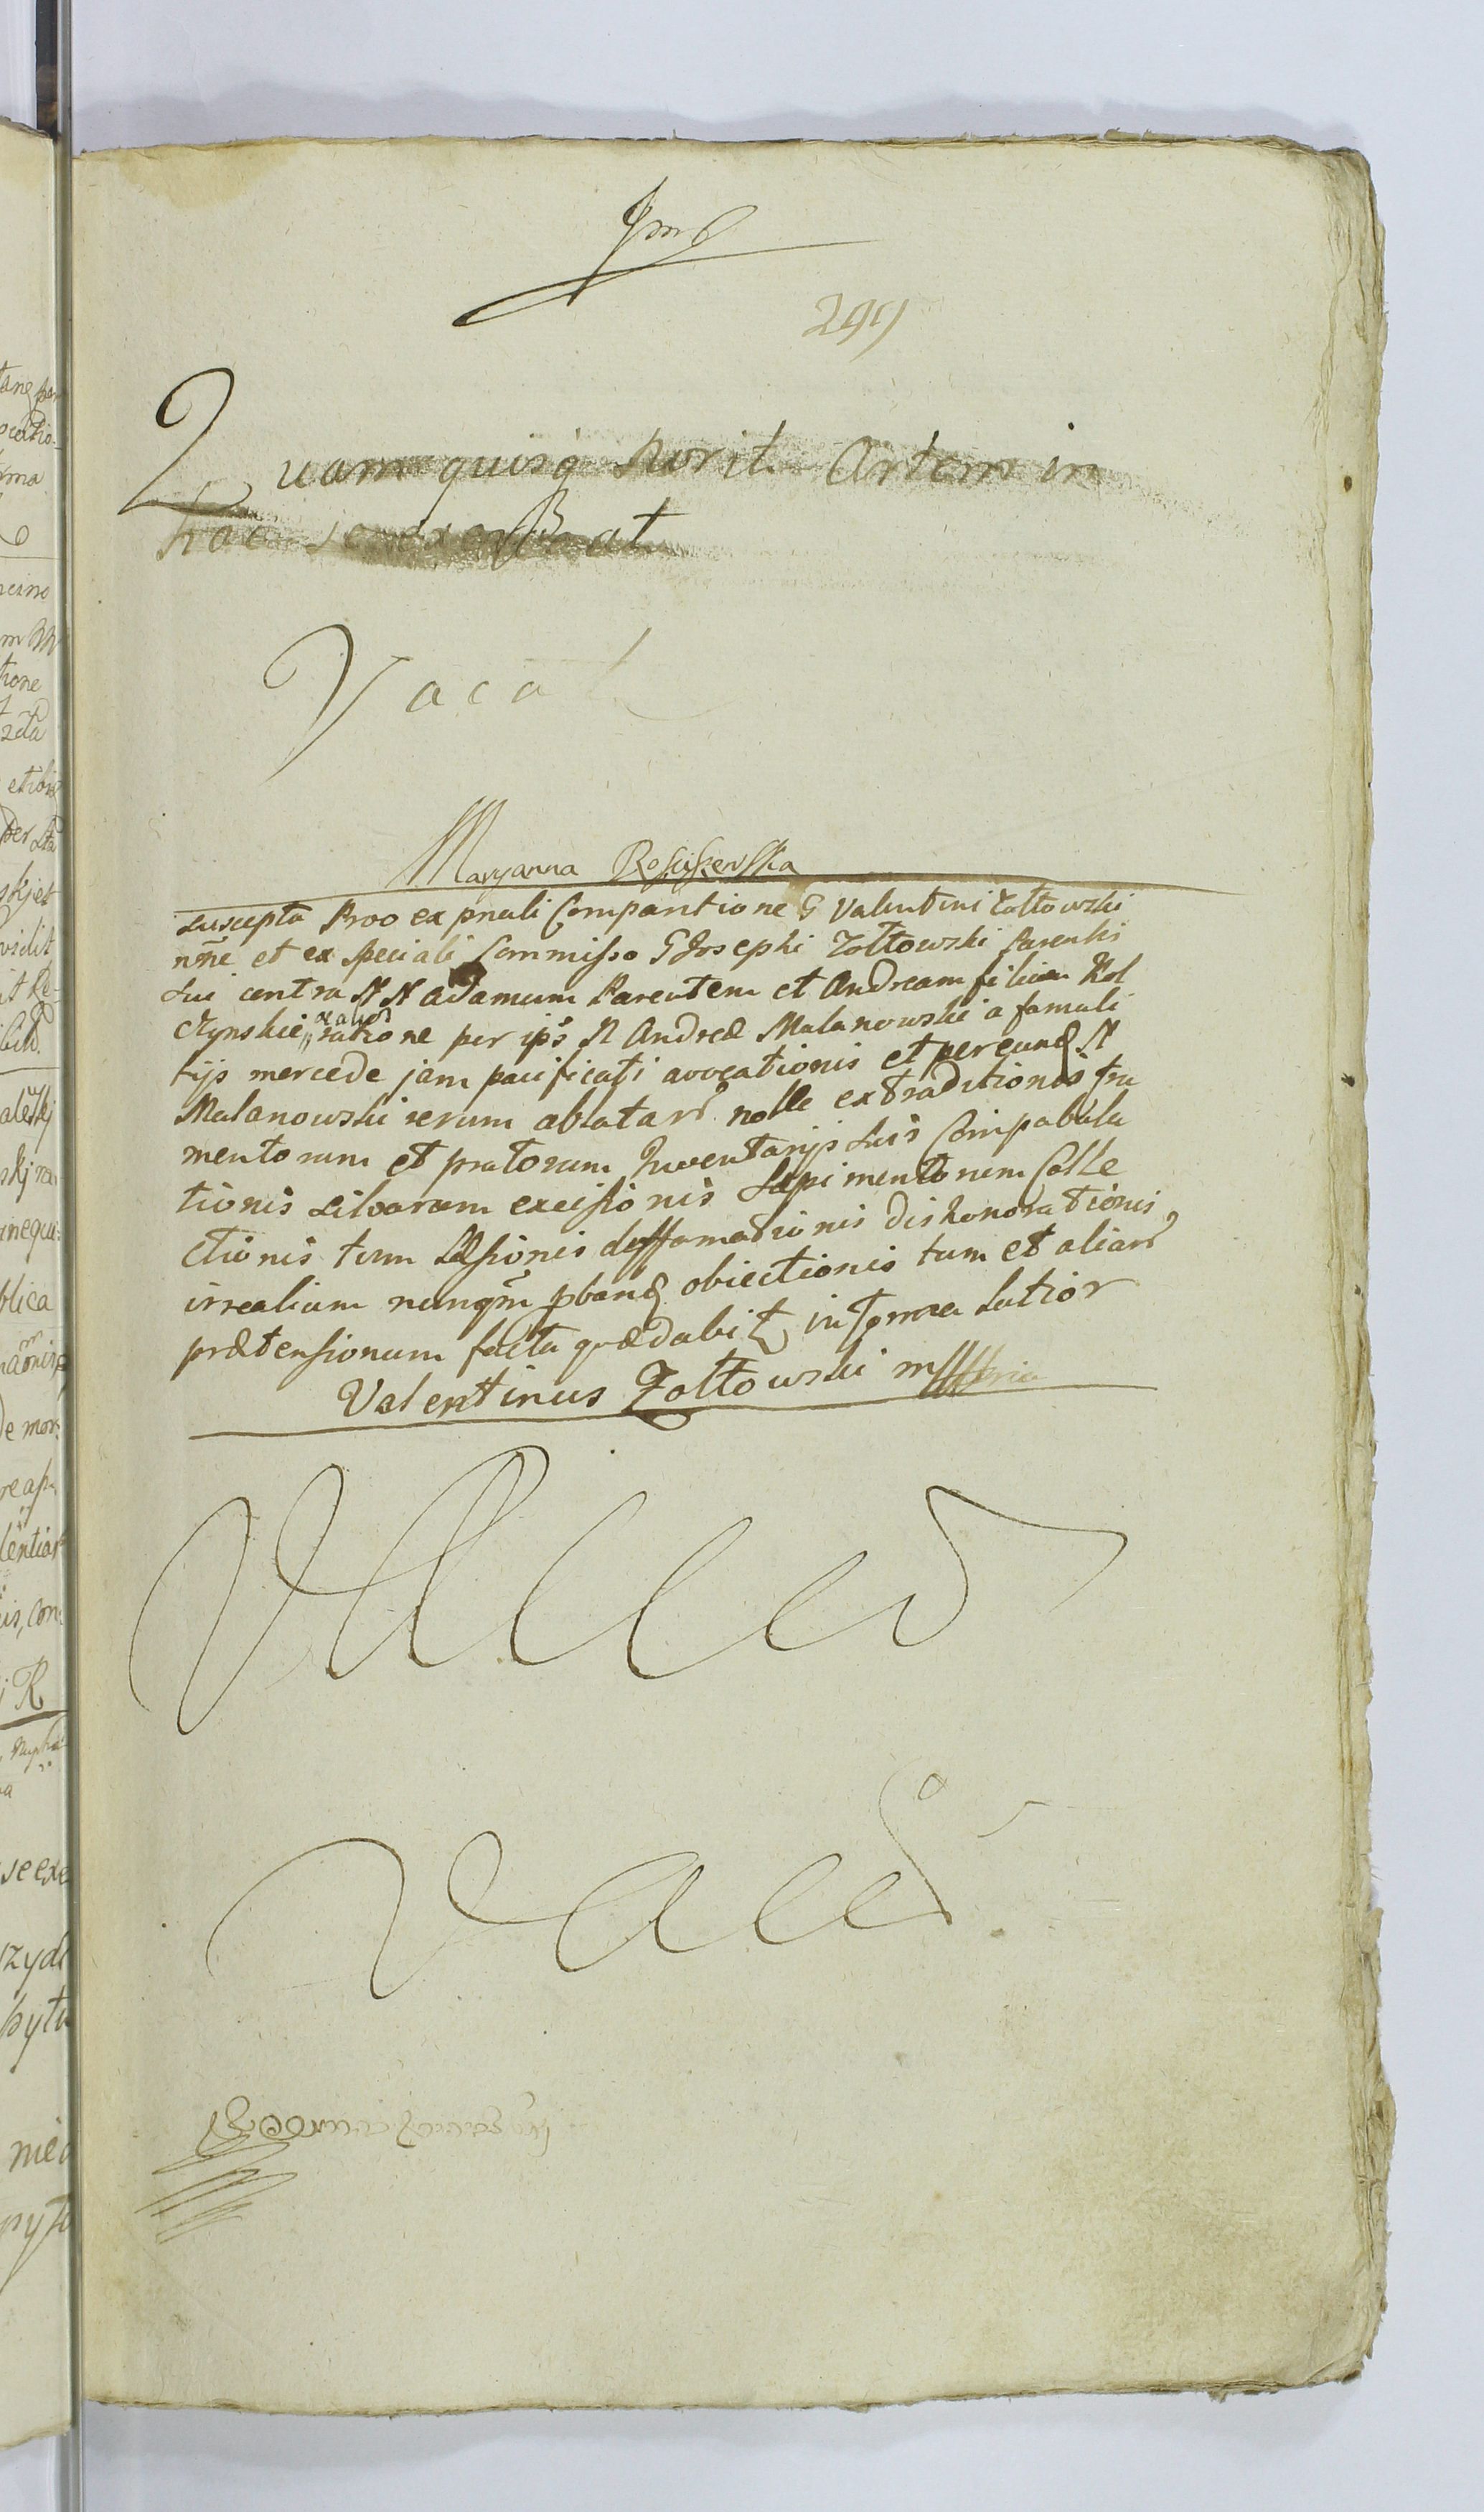 299
Quam quisq norit Artem in
hac se exerceat
Vacat
Maryanna Rościszewska
suscepta Proo ex pnali Comparitione G Valentini Zołtowski
nñe et ex speciali Commisso G Josephi Zołtowski Parentis
sui contra N N Adamum Parentem et Andream filium Kol
czynskie ratione per ips N Andreæ Malanowski a famuli
tijs mercede jam pacificati avocationis et per eund N
Malanowski rerum ablatar nolle extraditionis fru
mentorum et pratorum Inventarijs suis Compabula
tionis silvarum excissionis Sæpimentorum Colle
ctionis tum Læsionis deffamationis dishonorationis
irrealium nunqm pband obiectionis tum et aliar
prætensionum facta quæ dabit in forma latior
Valentinus Zołtowski mppria
Vacat
Vacat